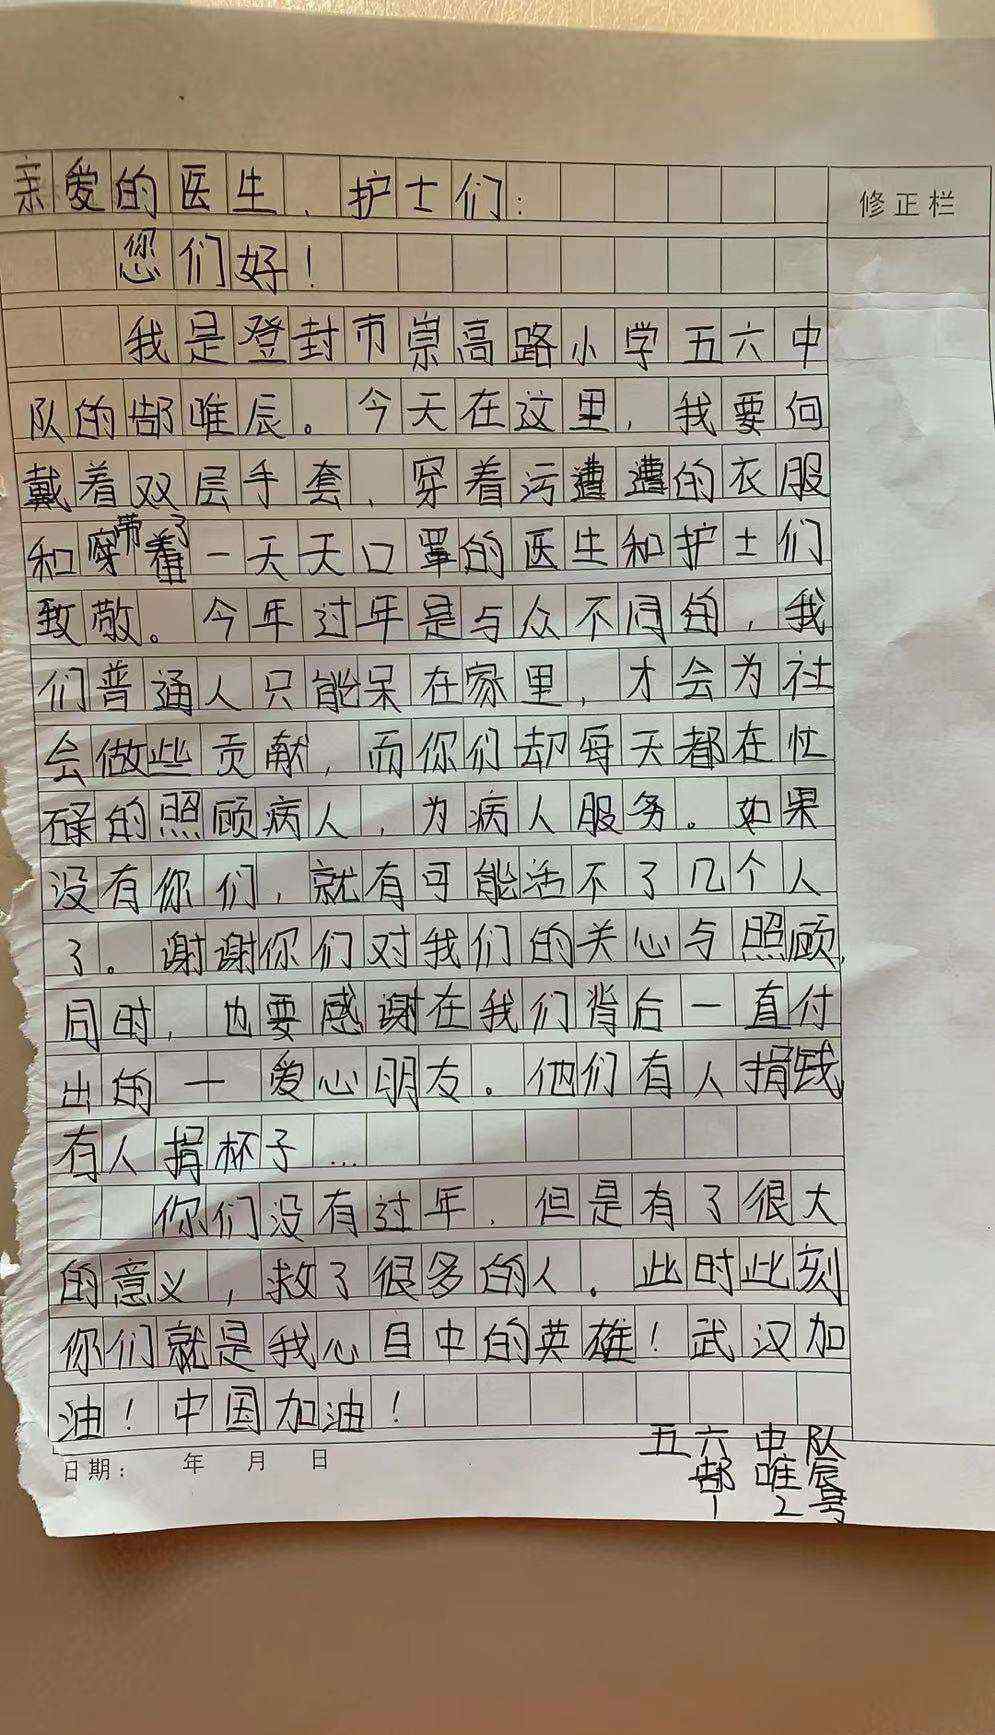 亲爱的医生、护士们：
修正栏
您们好！
我是登封市崇高路小学五六中
队的郜唯辰。今天在这里，我要向
戴着双层手套、穿着污遭遭的衣服
和带了一天天口罩的医生和护士们
致敬。今年过年是与众不同的，我
们普通人只能呆在家里，才会为社
会做些贡献，而你们却每天都在忙
碌的照顾病人，为病人服务。如果
没有你们，就有可能活不了几个人
了。谢谢你们对我们的关心与照顾，
同时，也要感谢在我们背后一直付
出的一爱心朋友。他们有人捐钱
有人捐杯子…
你们没有过年，但是有了很大
的意义，救了很多的人。此时此刻
你们就是我心目中的英雄！武汉加
油！中国加油！
五六中队
日期： 年 月 日
郜唯辰
12号